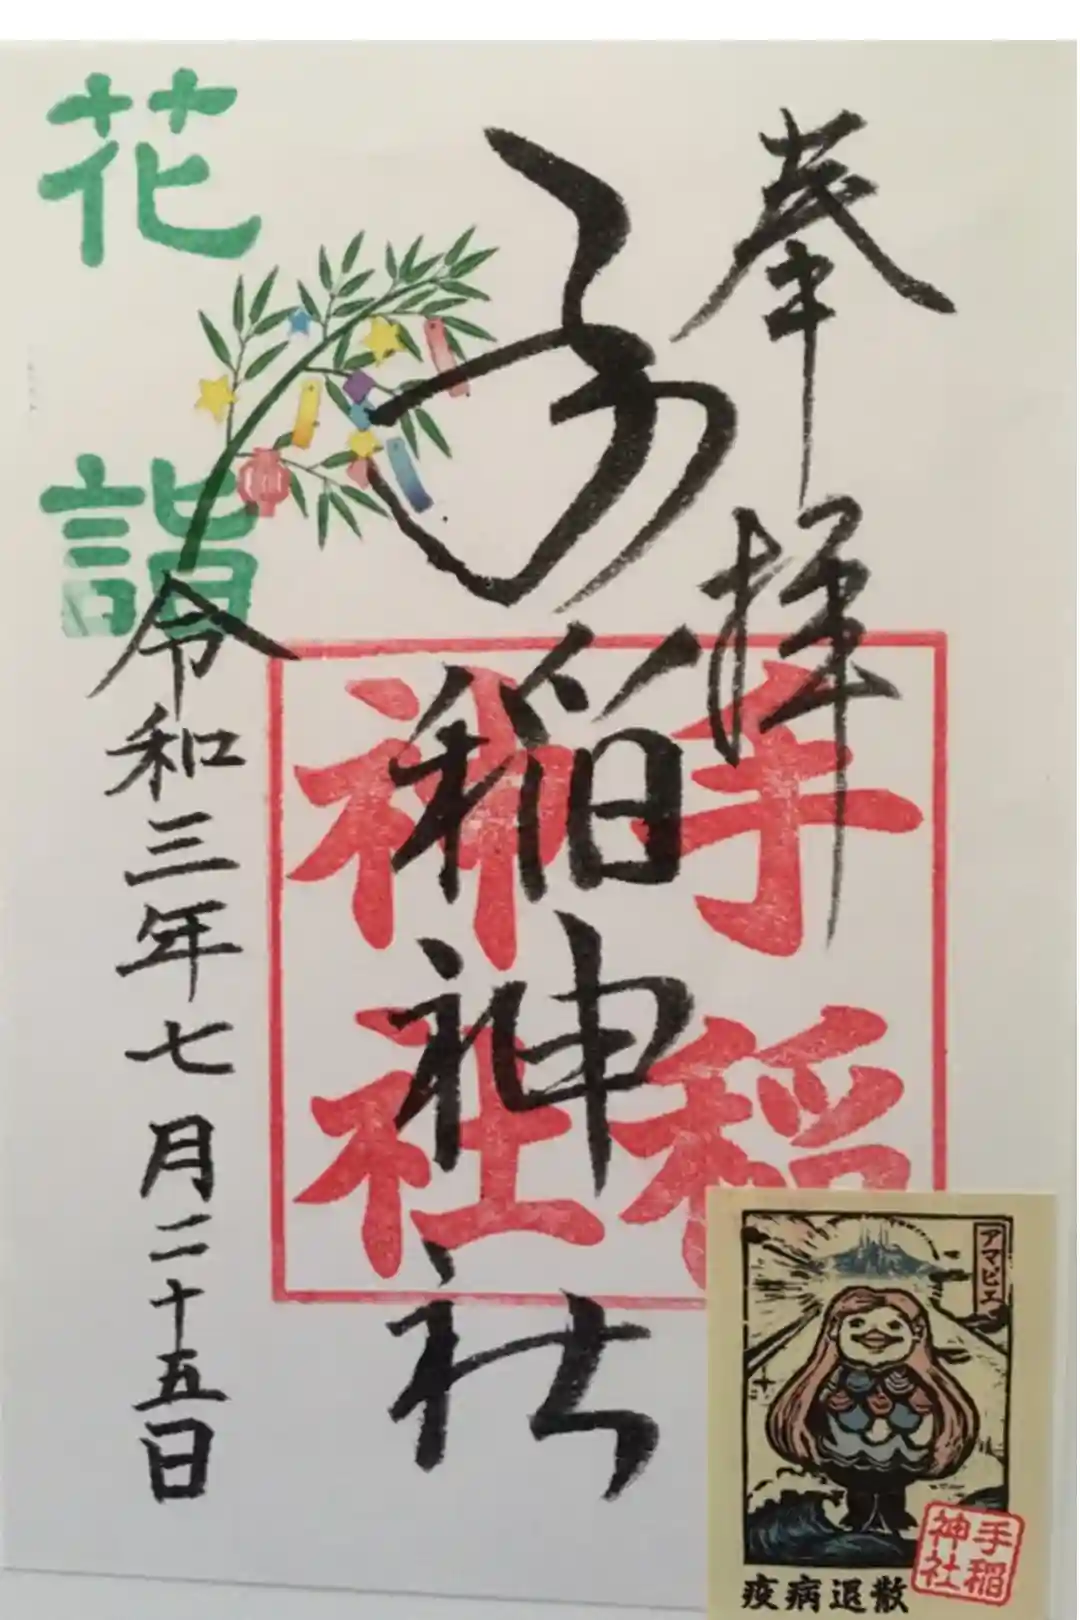 奉拝
手稲神社
令和三年七月二十五日
花詣
手稲
神社
アマビエ
疫病退散
手稲
神社